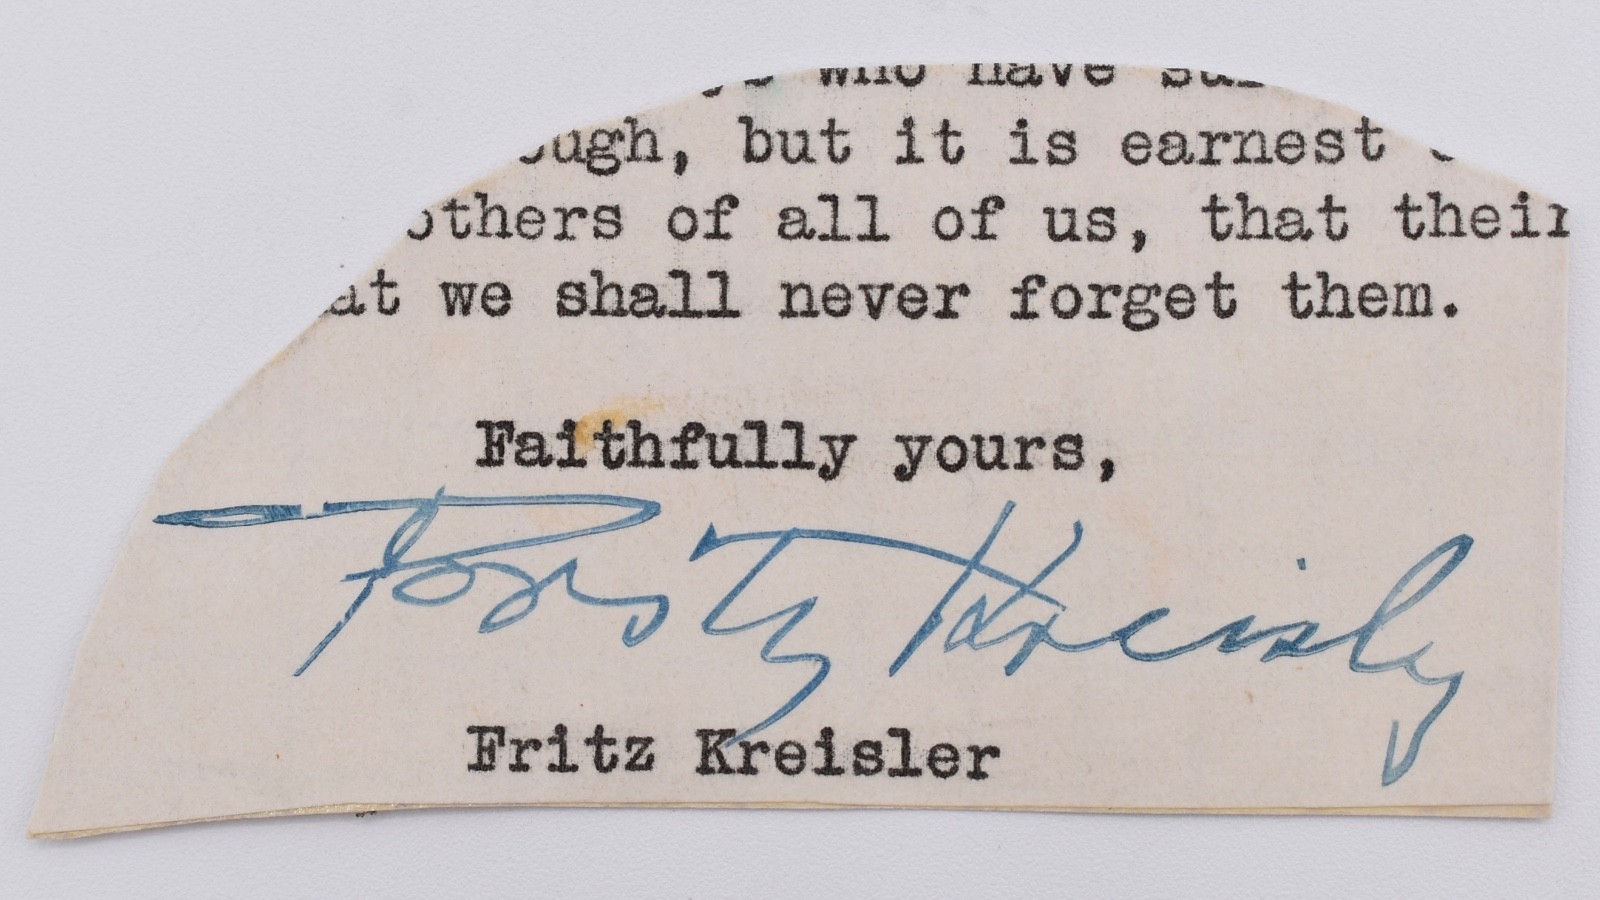 who have
but it is earnest
of all of us, that their
we shall never forget them.
Faithfully yours,
Fritz Kreisler
Fritz Kreisler